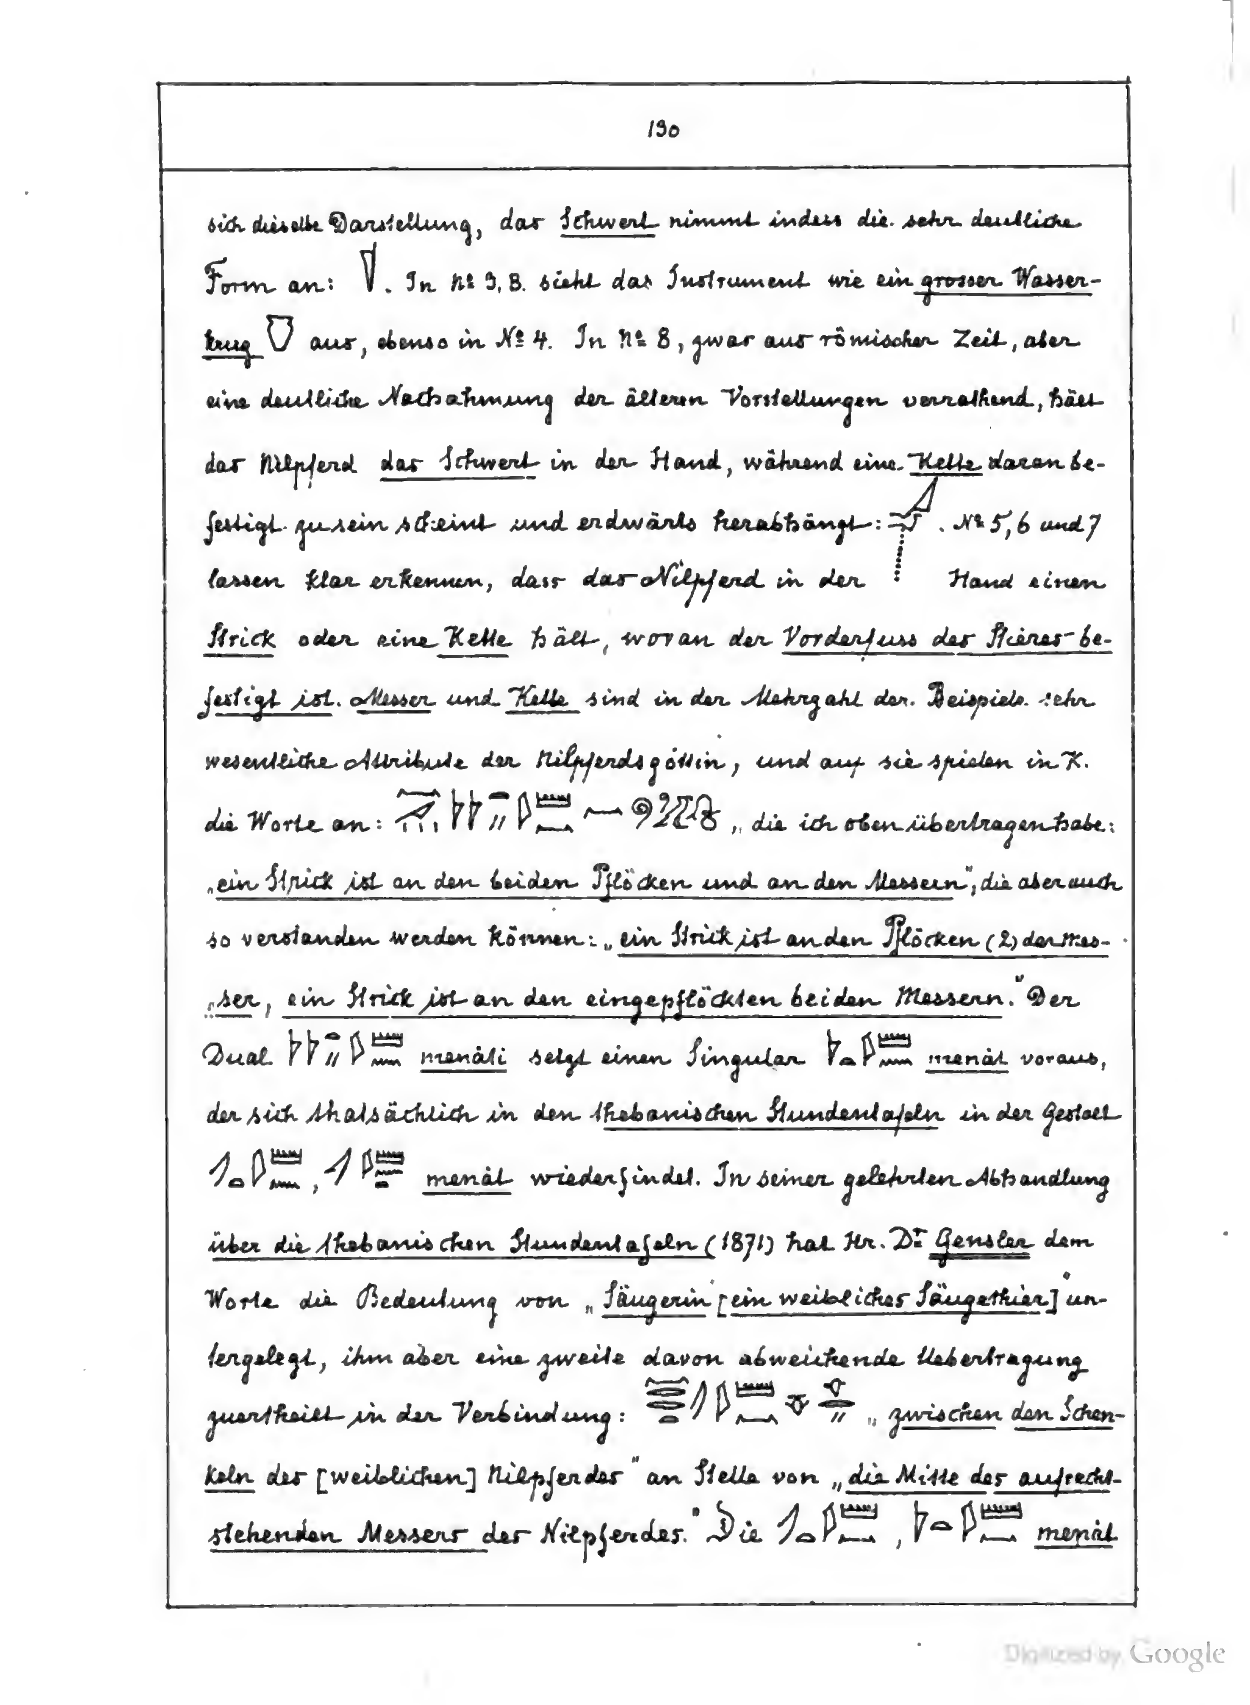 190
sich dieselbe Darstellung, das Schwert nimmt indess die sehr deutliche
Form an: . In No 3, B. sieht das Instrument wie ein grosser Wasser-
krug aus, ebenso in No 4. In No 8, zwar aus römischer Zeit, aber
eine deutliche Nachahmung der älteren Vorstellungen verrathend, hält
das Nilpferd das Schwert in der Hand, während eine Kette daran be-
festigt zu sein scheint und erdwärts herabhängt: . No 5, 6 und 7
lassen klar erkennen, dass das Nilpferd in der Hand einen
Strick oder eine Kette hält, woran der Vorderfuss des Stieres be-
festigt ist. Messer und Kette sind in der Mehrzahl der Beispiele sehr
wesentliche Attribute der Nilpferdsgöttin, und auf sie spielen in K.
die Worte an: , die ich oben übertragen habe:
„ein Strick ist an den beiden Pflöcken und an den Messern", die aber auch
so verstanden werden können: „ein Strick ist an den Pflöcken (2) der Mes-
„ser, ein Strick ist an den eingepflöckten beiden Messern." Der
Dual menâti setzt einen Singular menât voraus,
der sich thatsächlich in den thebanischen Stundentafeln in der Gestalt
, menât wiederfindet. In seiner gelehrten Abhandlung
über die thebanischen Stundentafeln (1871) hat Hr. Dr Gensler dem
Worte die Bedeutung von „Säugerin [ein weibliches Säugethier]" un-
tergelegt, ihm aber eine zweite davon abweichende Uebertragung
zuertheilt in der Verbindung: „zwischen den Schen-
keln des [weiblichen] Nilpferdes" an Stelle von „die Mitte des aufrecht-
stehenden Messers des Nilpferdes." Die , menât
Digitized by Google